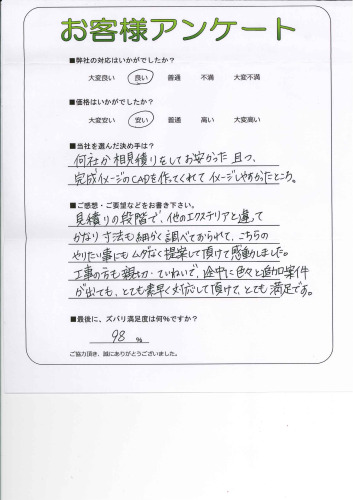 お客様アンケート
■弊社の対応はいかがでしたか?
大変良い 良い 普通 不満 大変不満
■価格はいかがでしたか?
大変安い 安い 普通 高い 大変高い
■当社を選んだ決め手は?
何社か相見積りをしてお安かった 且つ、
完成イメージのCADを作ってくれてイメージしやすかったところ。
■ご感想・ご要望などをお書き下さい。
見積りの段階で、他のエクステリアと違って
かなり寸法も細かく調べておられて、こちらの
やりたい事にもムダなく提案して頂けて感動しました。
工事の方も親切・ていねいで、途中に色々と追加案件
が出ても、とても素早く対応して頂けて、とても満足です。
■最後に、ズバリ満足度は何%ですか?
98 %
ご協力頂き、誠にありがとうございました。